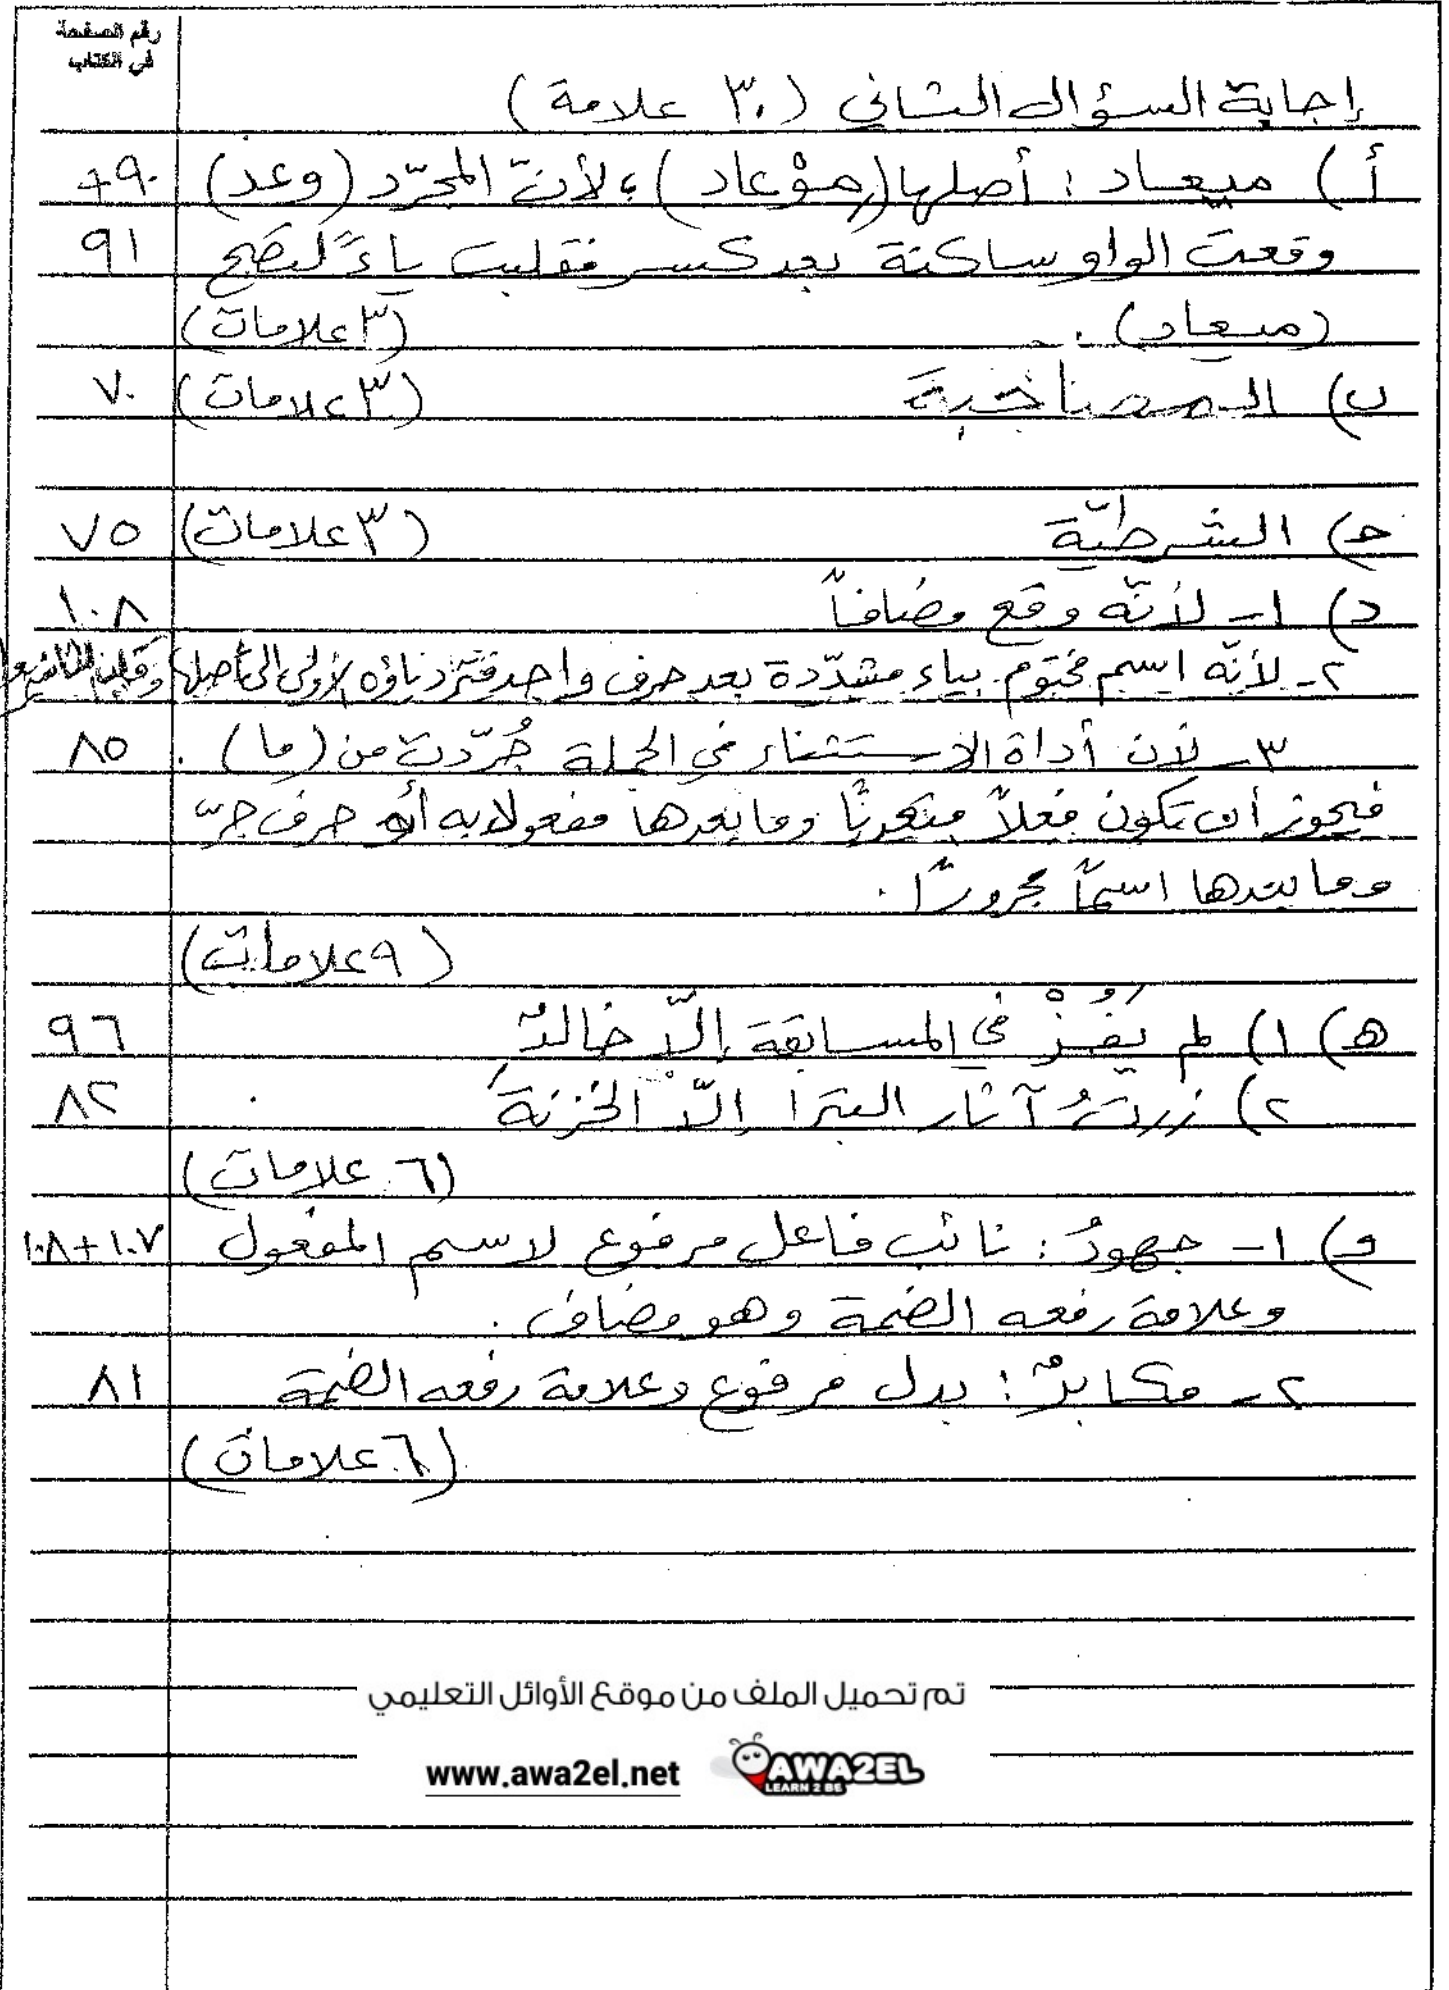 رقم الصفحة
في الكتاب
إجابة السؤال الثاني (٣٠ علامة)
أ) ميعاد : أصلها (مِوْعاد) ؛ لأنّ المجرّد (وعد) ٩٠+
وقعت الواو ساكنة بعد كسر فقلبت ياءً لتصبح ٩١
(ميعاد). (٣ علامات)
ب) المصاحبة (٣ علامات) ٧٠
جـ) الشرطيّة (٣ علامات) ٧٥
د) ١- لأنّه وقع مضافاً ١٠٨
٢- لأنّه اسم مختوم بياء مشدّدة بعد حرف واحد فتردّ ياؤه الأولى إلى أصلها وقلبت الثانية
٣- لأن أداة الاستثناء في الجملة جُرّدت من (ما) . ٨٥
فيجوز أن تكون فعلاً متعديًا وما بعدها مفعولا به أو حرف جرّ
وما بعدها اسمًا مجرورًا .
(٩ علامات)
هـ) ١) لم يَفُزْ في المسابقة إلّا خالدٌ ٩٦
٢) زرتُ آثار البترا إلّا الخزنةَ ٨٢
(٦ علامات)
و) ١- جهودُ : نائب فاعل مرفوع لاسم المفعول ١٠٧+١٠٨
وعلامة رفعه الضمة وهو مضاف .
٢- مكابرٌ : بدل مرفوع وعلامة رفعه الضمة ٨١
(٦ علامات)
تم تحميل الملف من موقع الأوائل التعليمي
www.awa2el.net AWA2EL
LEARN 2 BE